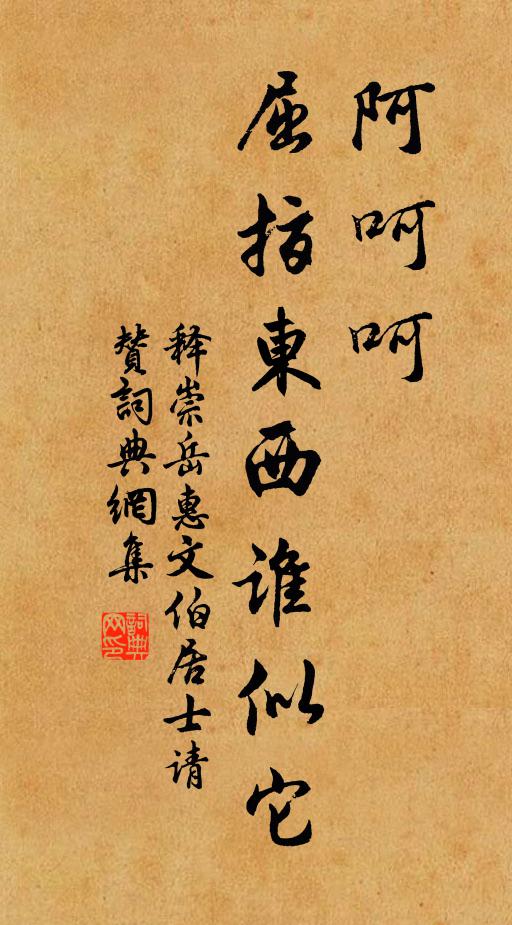 阿呵呵
屈指東西誰似它
释崇岳惠文伯居士请
贊詞典網集
詞典网印